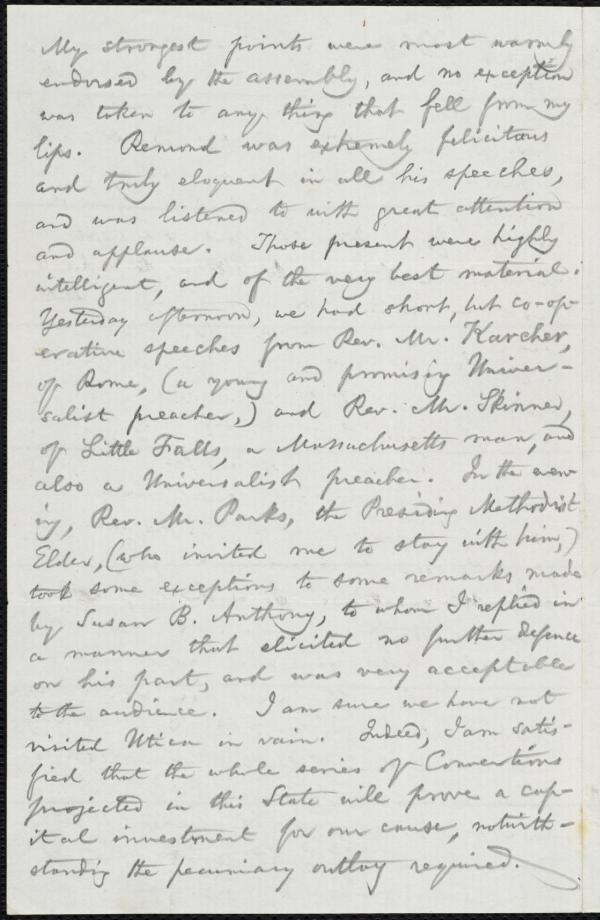 My strongest points were most warmly
endorsed by the assembly, and no exception
was taken to any thing that fell from my
lips. Remond was extremely felicitous
and truly eloquent in all his speeches,
and was listened to with great attention
and applause. Those present were highly
intelligent, and of the very best material.
Yesterday afternoon, we had short, but co-op-
erative speeches from Rev. Mr. Karcher,
of Rome, (a young and promising Univer-
salist preacher,) and Rev. Mr. Skinner,
of Little Falls, a Massachusetts man, and
also a Universalist preacher. In the even-
ing, Rev. Mr. Parks, the Presiding Methodist
Elder, (who invited me to stay with him,)
took some exceptions to some remarks made
by Susan B. Anthony, to whom I replied in
a manner that elicited no further defence
on his part, and was very acceptable
to the audience. I am sure we have not
visited Utica in vain. Indeed, I am satis-
fied that the whole series of Conventions
projected in this State will prove a cap-
ital investment for our cause, notwith-
standing the pecuniary outlay required.